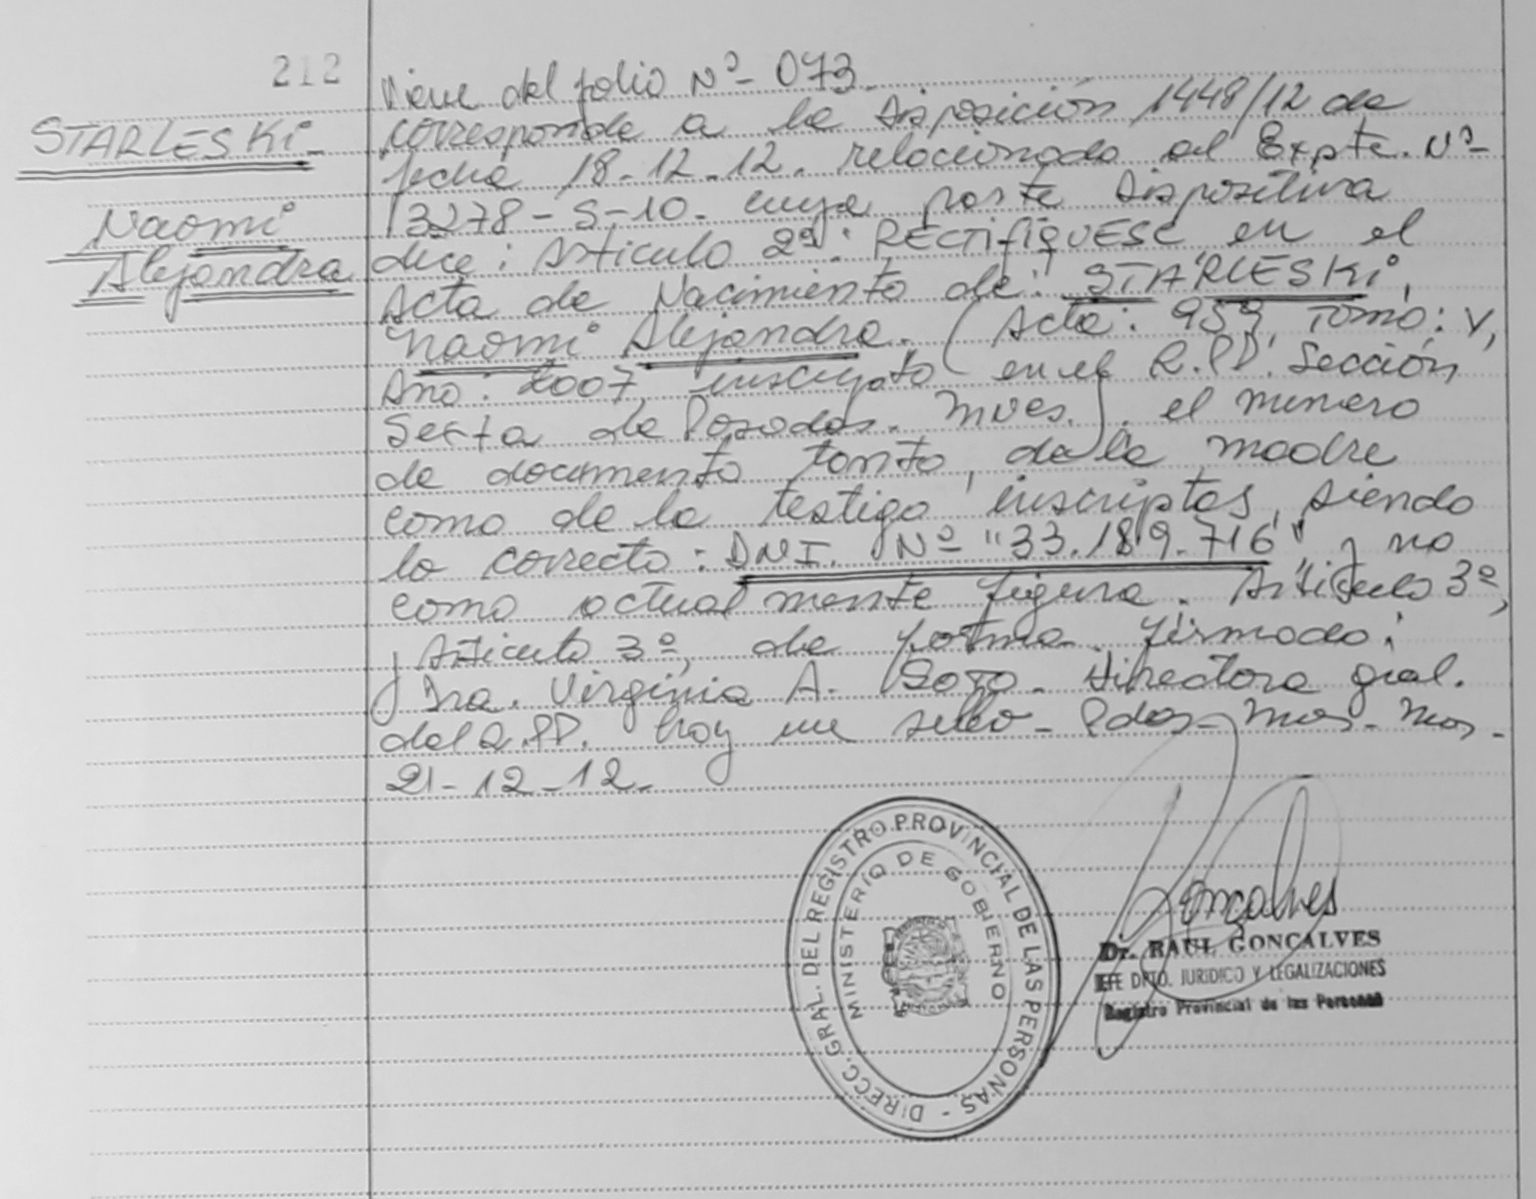 212
STARLESKi-
Naomi
Alejandra
Viene del folio Nº- 073.
corresponde a la Disposición 1448/12 de
fecha 18-12-12. relacionado al Expte. Nº-
13278-S-10- cuya parte Dispositiva
dice: Articulo 2º: RECTIFIQUESE en el
Acta de Nacimiento de: STARLESKi,
Naomi Alejandra. (Acta: 959, Tomo: V,
Año: 2007, inscripto en el R.PP. Sección
Sexta de Posadas. Mnes.). el número
de documento tanto, de la madre
como de la testigo inscriptas, siendo
lo correcto: DNI. Nº "33.189.716" y no
como actualmente figura. Articulo 3º,
y Articulo 3º, de forma. firmado:
Dra. Virginia A. Soto. Directora gral.
del R.PP. hay un sello- Pdas- Mnes-
21-12-12.-
DIRECC. GRAL. DEL REGISTRO PROVINCIAL DE LAS PERSONAS -
MINISTERIO DE GOBIERNO
Goncalves
Dr. RAUL GONCALVES
JEFE DPTO. JURIDICO Y LEGALIZACIONES
Registro Provincial de las Personas